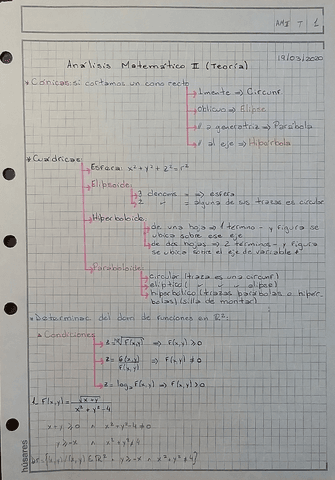 AMII T 1
19/03/2020
Análisis Matemático II (Teoría)
* Cónicas: si cortamos un cono recto
⊥mente => Circunf.
Oblicuo => Elipse
// a generatriz => Parábola
// al eje => Hipérbola
* Cuádricas
Esfera: x²+y²+z²=r²
Elipsoide
3 denoms = => esfera
2 " = alguna de sus trazas es circular
Hiperboloide
de una hoja => 1 término - y figura se
ubica sobre ese eje
de dos hojas => 2 términos - y figura
se ubica sobre el eje de variable +
Paraboloide
circular (traza es una circunf)
elíptico ( " " " elipse)
hiperbólico (trazas parábolas o hipér-
bolas) (silla de montar)
* Determinac. del dom de funciones en ℝ²:
Condiciones
z = ⁿ√F(x,y) => F(x,y) ≥ 0
z = G(x,y)/F(x,y) => F(x,y) ≠ 0
z = logₐ F(x,y) => F(x,y) > 0
1. F(x,y) = √(x+y) / (x²+y²-4)
x+y ≥ 0 ∧ x²+y²-4 ≠ 0
y ≥ -x ∧ x²+y² ≠ 4
D= {(x,y)/(x,y) ∈ ℝ² ∧ y ≥ -x ∧ x²+y² ≠ 4}
húsares